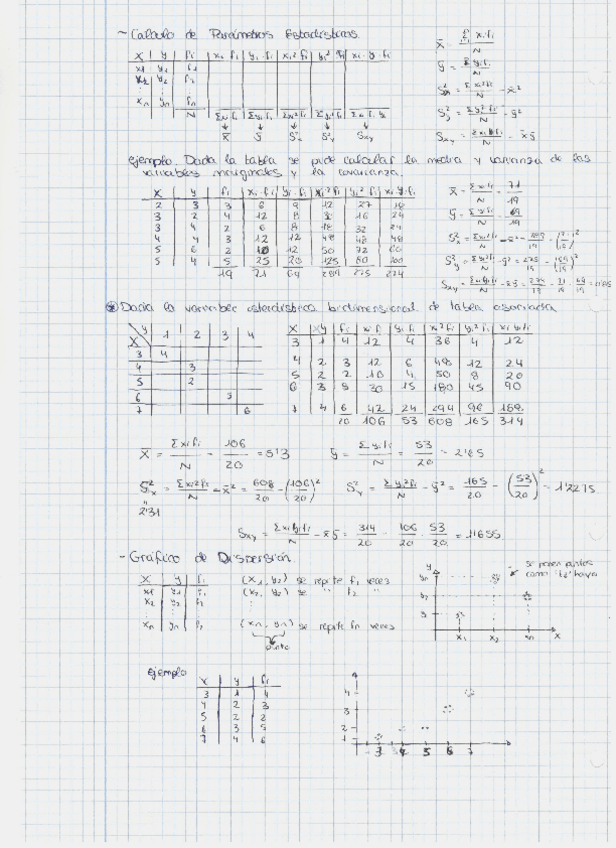 ~ Calculo de Parámetros Estadísticos.
x | y | fi | xi·fi | yi·fi | xi²·fi | yi²·fi | xi·yi·fi
x1 y1 f1
x2 y2
xn yn fn
N Σxi·fi Σyi·fi Σxi²·fi Σyi²·fi Σxi·fi·yi
x̄ ȳ S²x S²y Sxy
x̄ = Σxi·fi/N
ȳ = Σyi·fi/N
S²x = Σxi²fi/N - x̄²
S²y = Σyi²·fi/N - ȳ²
Sxy = Σxiyifi/N - x̄ȳ
ejemplo. Dada la tabla se pide calcular la media y varianza de las
variables marginales y la covarianza.
x | y | fi | xi·fi | yi·fi | xi²·fi | yi²·fi | xi·yi·fi
2 3 3 6 9 12 27 18
3 2 4 12 8 36 16 24
3 4 2 6 8 18 32 24
4 4 3 12 12 48 48 48
5 6 2 10 12 50 72 60
5 4 5 25 20 125 80 100
19 71 69 289 275 274
x̄ = Σxifi/N = 71/19
ȳ = Σyifi/N = 69/19
Dada la variable estadística bidimensional de tabla asociada
y 1 2 3 4
x
3 4
4 3
5 2
6 5
7 6
x | y | fi | xi·fi | yi·fi | xi²·fi | yi²·fi | xi·yi·fi
3 1 4 12 4 36 4 12
4 2 3 12 6 48 12 24
5 2 2 10 4 50 8 20
6 3 5 30 15 180 45 90
7 4 6 42 24 294 96 168
20 106 53 608 165 314
x̄ = Σxifi/N = 106/20 = 5'3 ȳ = Σyifi/N = 53/20 = 2'65
S²x = Σxi²fi/N - x̄² = 608/20 - (106/20)² S²y = Σyi²fi/N - ȳ² = 165/20 - (53/20)² = 1'2275
2'31
Sxy = Σxiyifi/N - x̄ȳ = 314/20 - 106/20 · 53/20 = 1'655
- Gráfico de Dispersión
x | y | fi (x1, y1) se repite f1 veces
x1 y1 f1
x2 y2 f2 (x2, y2) se " f2 "
xn yn (xn, yn) se repite fn veces
punto
y
yn
y2
x1 x2 xn x
- se ponen puntos
como "fi" haya
ejemplo
x | y | fi
3 1 4
4 2 3
5 2 2
6 3 5
7 4 6
4
3
2
1
3 4 5 6 7